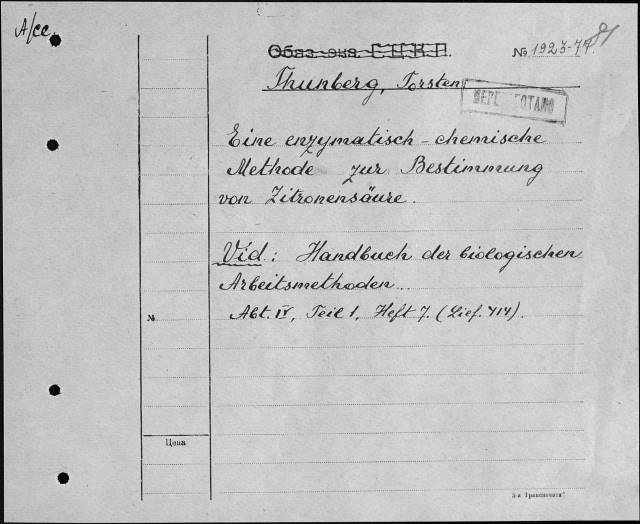 А/сс.
№ 1923-77.
Thunberg, Torsten
Eine enzymatisch-chemische
Methode zur Bestimmung
von Zitronensäure.
Vid.: Handbuch der biologischen
Arbeitsmethoden..
Abt. IV, Teil 1, Heft 7. (Lief. 414).
№
Цена